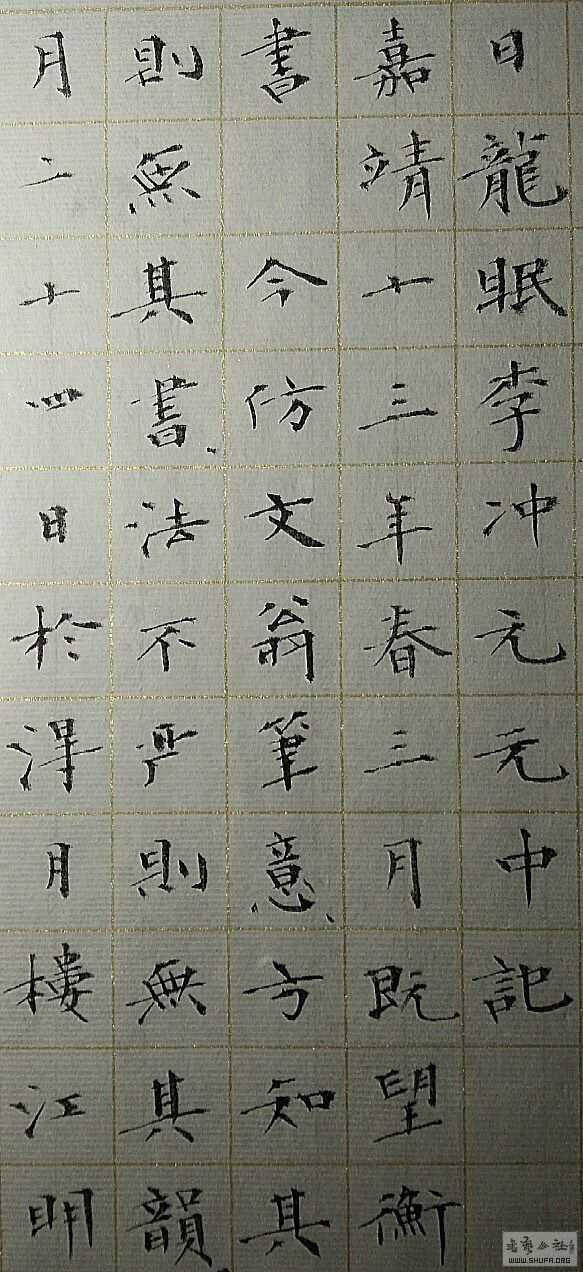 日龍眠李冲元元中記
嘉靖十三年春三月既望衡
書 今仿文翁筆意方知其
則無其書法不严則無其韻
月二十四日於淂月樓江明
书艺公社
WWW.SHUFA.ORG